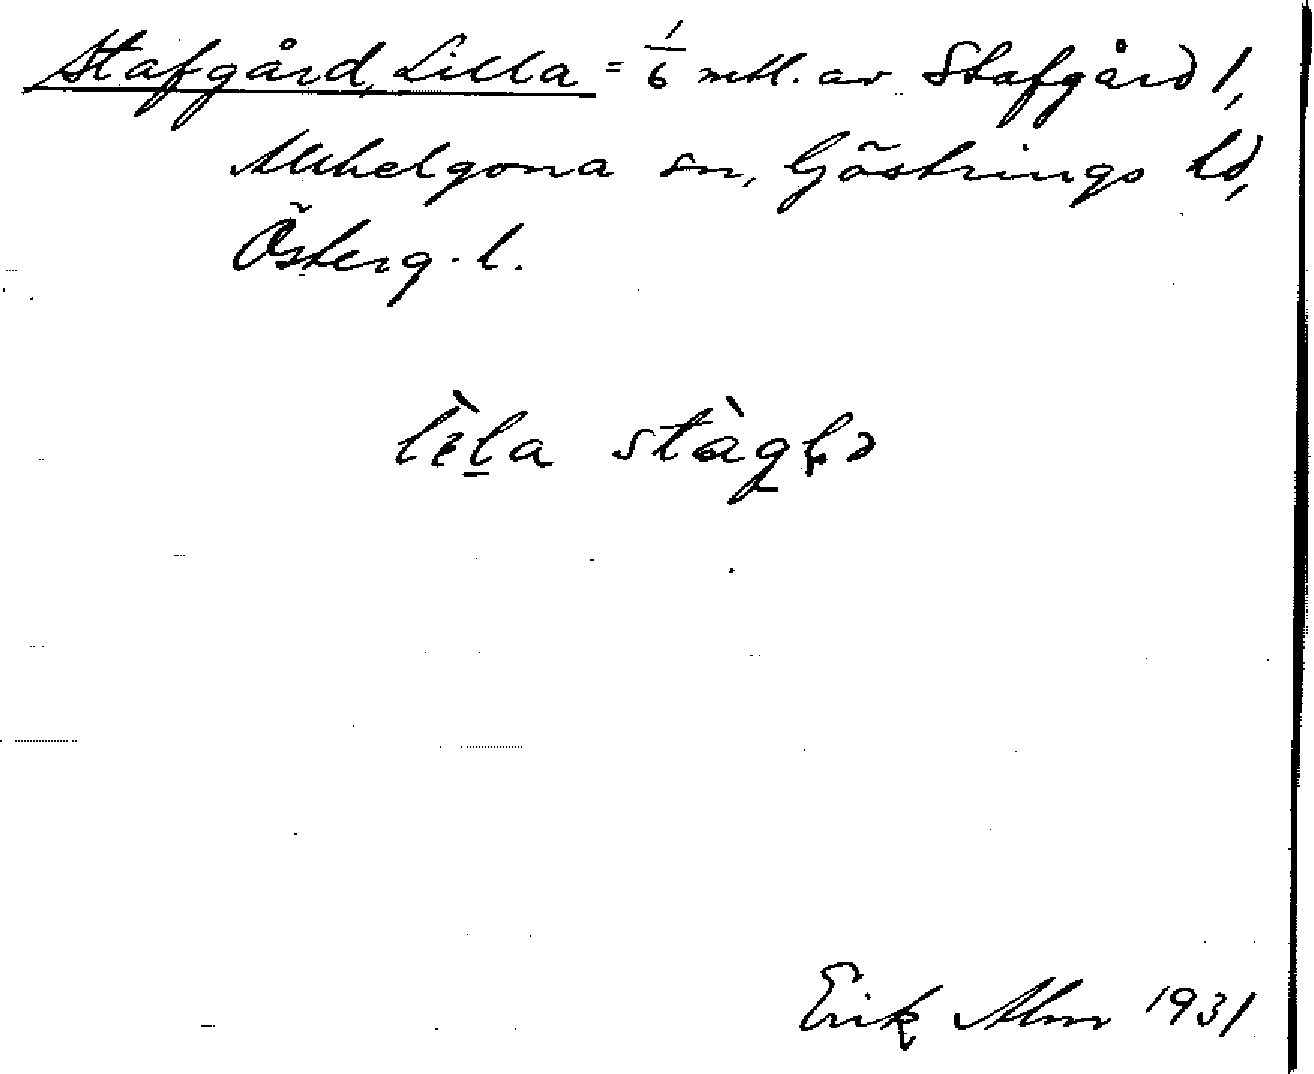 Stafgård, Lilla = 1/6 mtl. av Stafgård 1,
Allhelgona sn, Göstrings hd,
Österg. l.
Erik Alm 1931